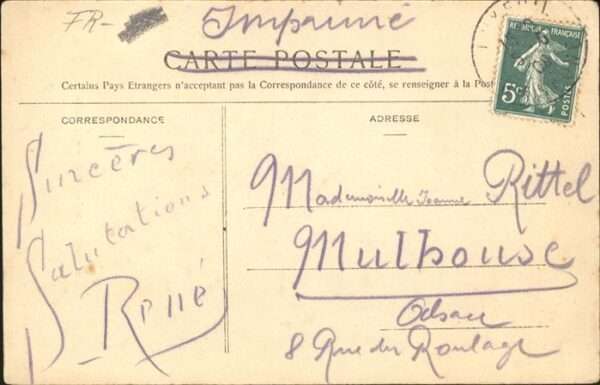 FR-
Imprimé
CARTE POSTALE
Certains Pays Etrangers n'acceptant pas la Correspondance de ce côté, se renseigner à la Post
REPUBLIQUE FRANÇAISE
5c
POSTES
CORRESPONDANCE
Sincères
Salutations
René
ADRESSE
Mademoiselle Jeanne Rittel
Mulhouse
Alsace
8 Rue du Roulage